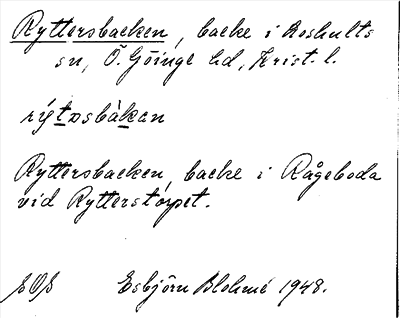 Ryttersbacken, backe i Boshults
sn, Ö. Göinge hd, Krist. l.
rýtǝsbàkan
Ryttersbacken, backe i Rågeboda
vid Rytterstorpet.
Esbjörn Blohmé 1948.